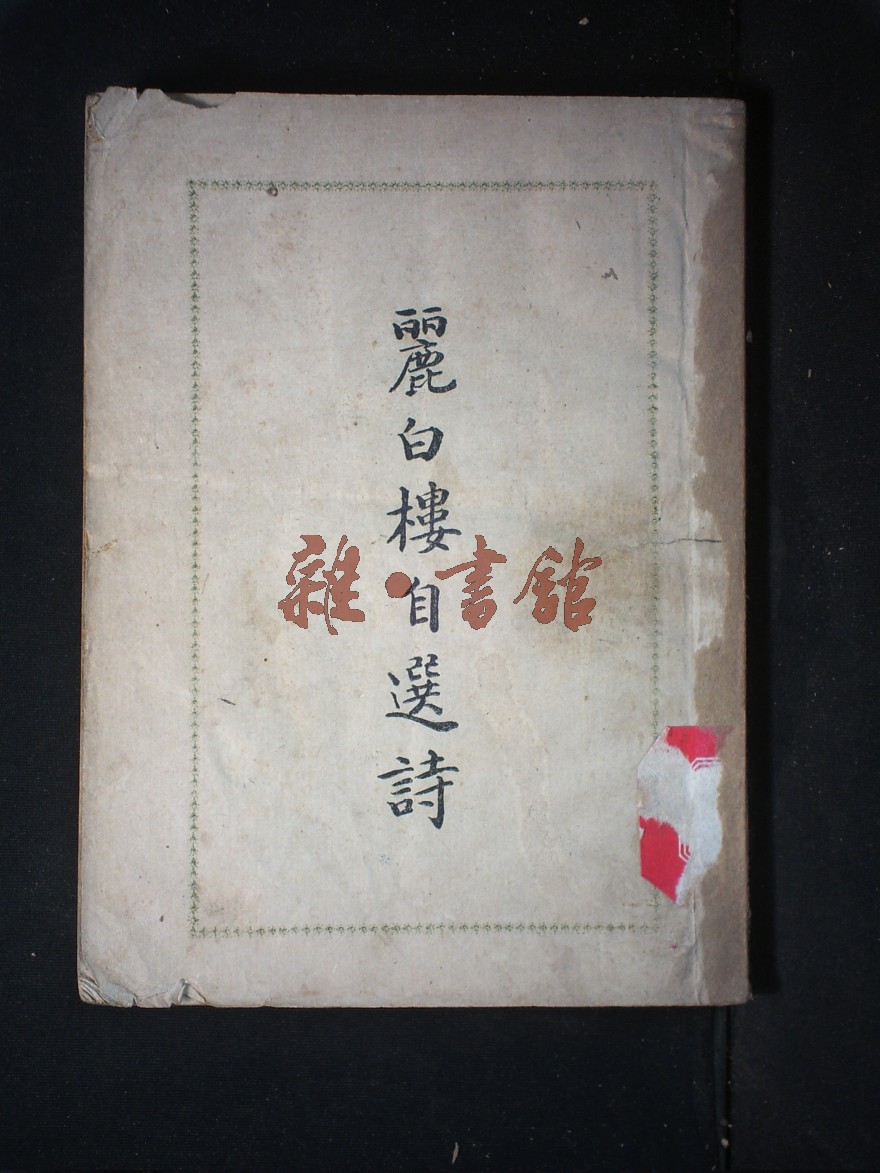 麗白樓自選詩
雜·書館